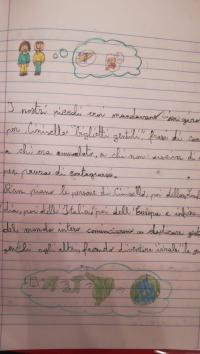 I nostri piccoli eroi mandavano ogni giorno
per Cinisello "biglietti gentili"
a chi era ammalato, a chi non usciva di
per paura di contagiarsi.
Pian piano le persone di Cinisello, poi della
poi dell'Italia, poi dell'Europa e infine
del mondo intero cominciarono a dedicare
gentili agli altri, facendo diventare virale la